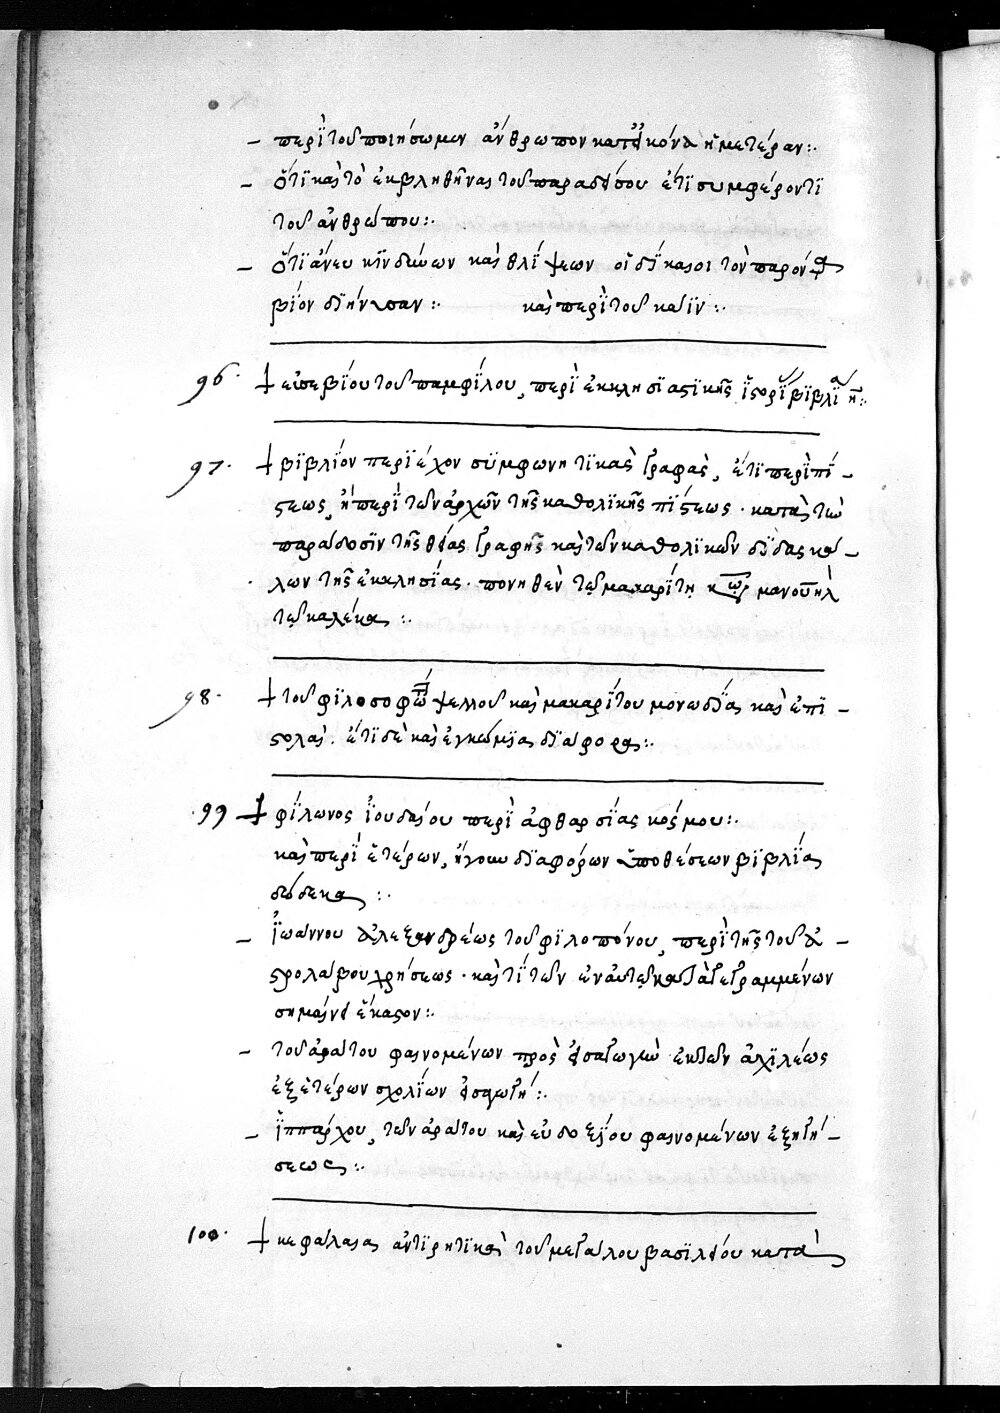 – περὶ τοῦ ποιήσωμεν ἄνθρωπον κατ' εἰκόνα ἡμετέραν:·
– ὅτι καὶ τὸ ἐκβληθῆναι τοῦ παραδείσου ἐτι συμφέροντι
τοῦ ἀνθρώπου:·
– ὅτι ἄνευ κινδύνων καὶ θλίψεων οἱ δίκαιοι τὸν παρόντα
βίον διήνυσαν:· καὶ περὶ τοῦ καϊν:·
96· † εὐσεβίου τοῦ παμφίλου, περὶ ἐκκλησιαστικῆς ἱστορίας βιβλία η:·
97· † βιβλίον περιέχον συμφωνητικὰς γραφὰς, ἔτι περὶ πί–
στεως, ἢ περὶ τῶν ἀρχῶν τῆς καθολικῆς πίστεως· κατὰ τὴν
παράδοσιν τῆς θείας γραφῆς καὶ τῶν καθολικῶν διδασκά–
λων τῆς ἐκκλησίας· πονηθὲν τῷ μακαρίτῃ μανουὴλ
τῷ καλέκα:·
98· † τοῦ φιλοσοφωτάτου ψελλοῦ καὶ μακαρίτου μονωδίαι καὶ ἐπι–
στολαὶ. ἔτι δὲ καὶ ἐγκώμια διάφορα:·
99 † φίλωνος ἰουδαίου περὶ ἀφθαρσίας κόσμου:·
καὶ περὶ ἑτέρων, ἤγουν διαφόρων ὑποθέσεων βιβλία
δώδεκα:·
– ἰωάννου ἀλεξανδρέως τοῦ φιλοπόνου, περὶ τῆς τοῦ ἀ–
στρολάβου χρήσεως· καὶ τί τῶν ἐν αὐτῷ καταγεγραμμένων
σημαίνει ἕκαστον:·
– τοῦ ἀράτου φαινομένων πρὸς εἰσαγωγὴν ἐκ τῶν ἀχιλέως
ἐξ ἑτέρων σχολίων εἰσαγωγή:·
– ἱππάρχου, τῶν ἀράτου καὶ εὐδοξίου φαινομένων ἐξηγή–
σεως:·
100· † κεφάλαια ἀντιρητικὰ τοῦ μεγάλου βασιλείου κατὰ